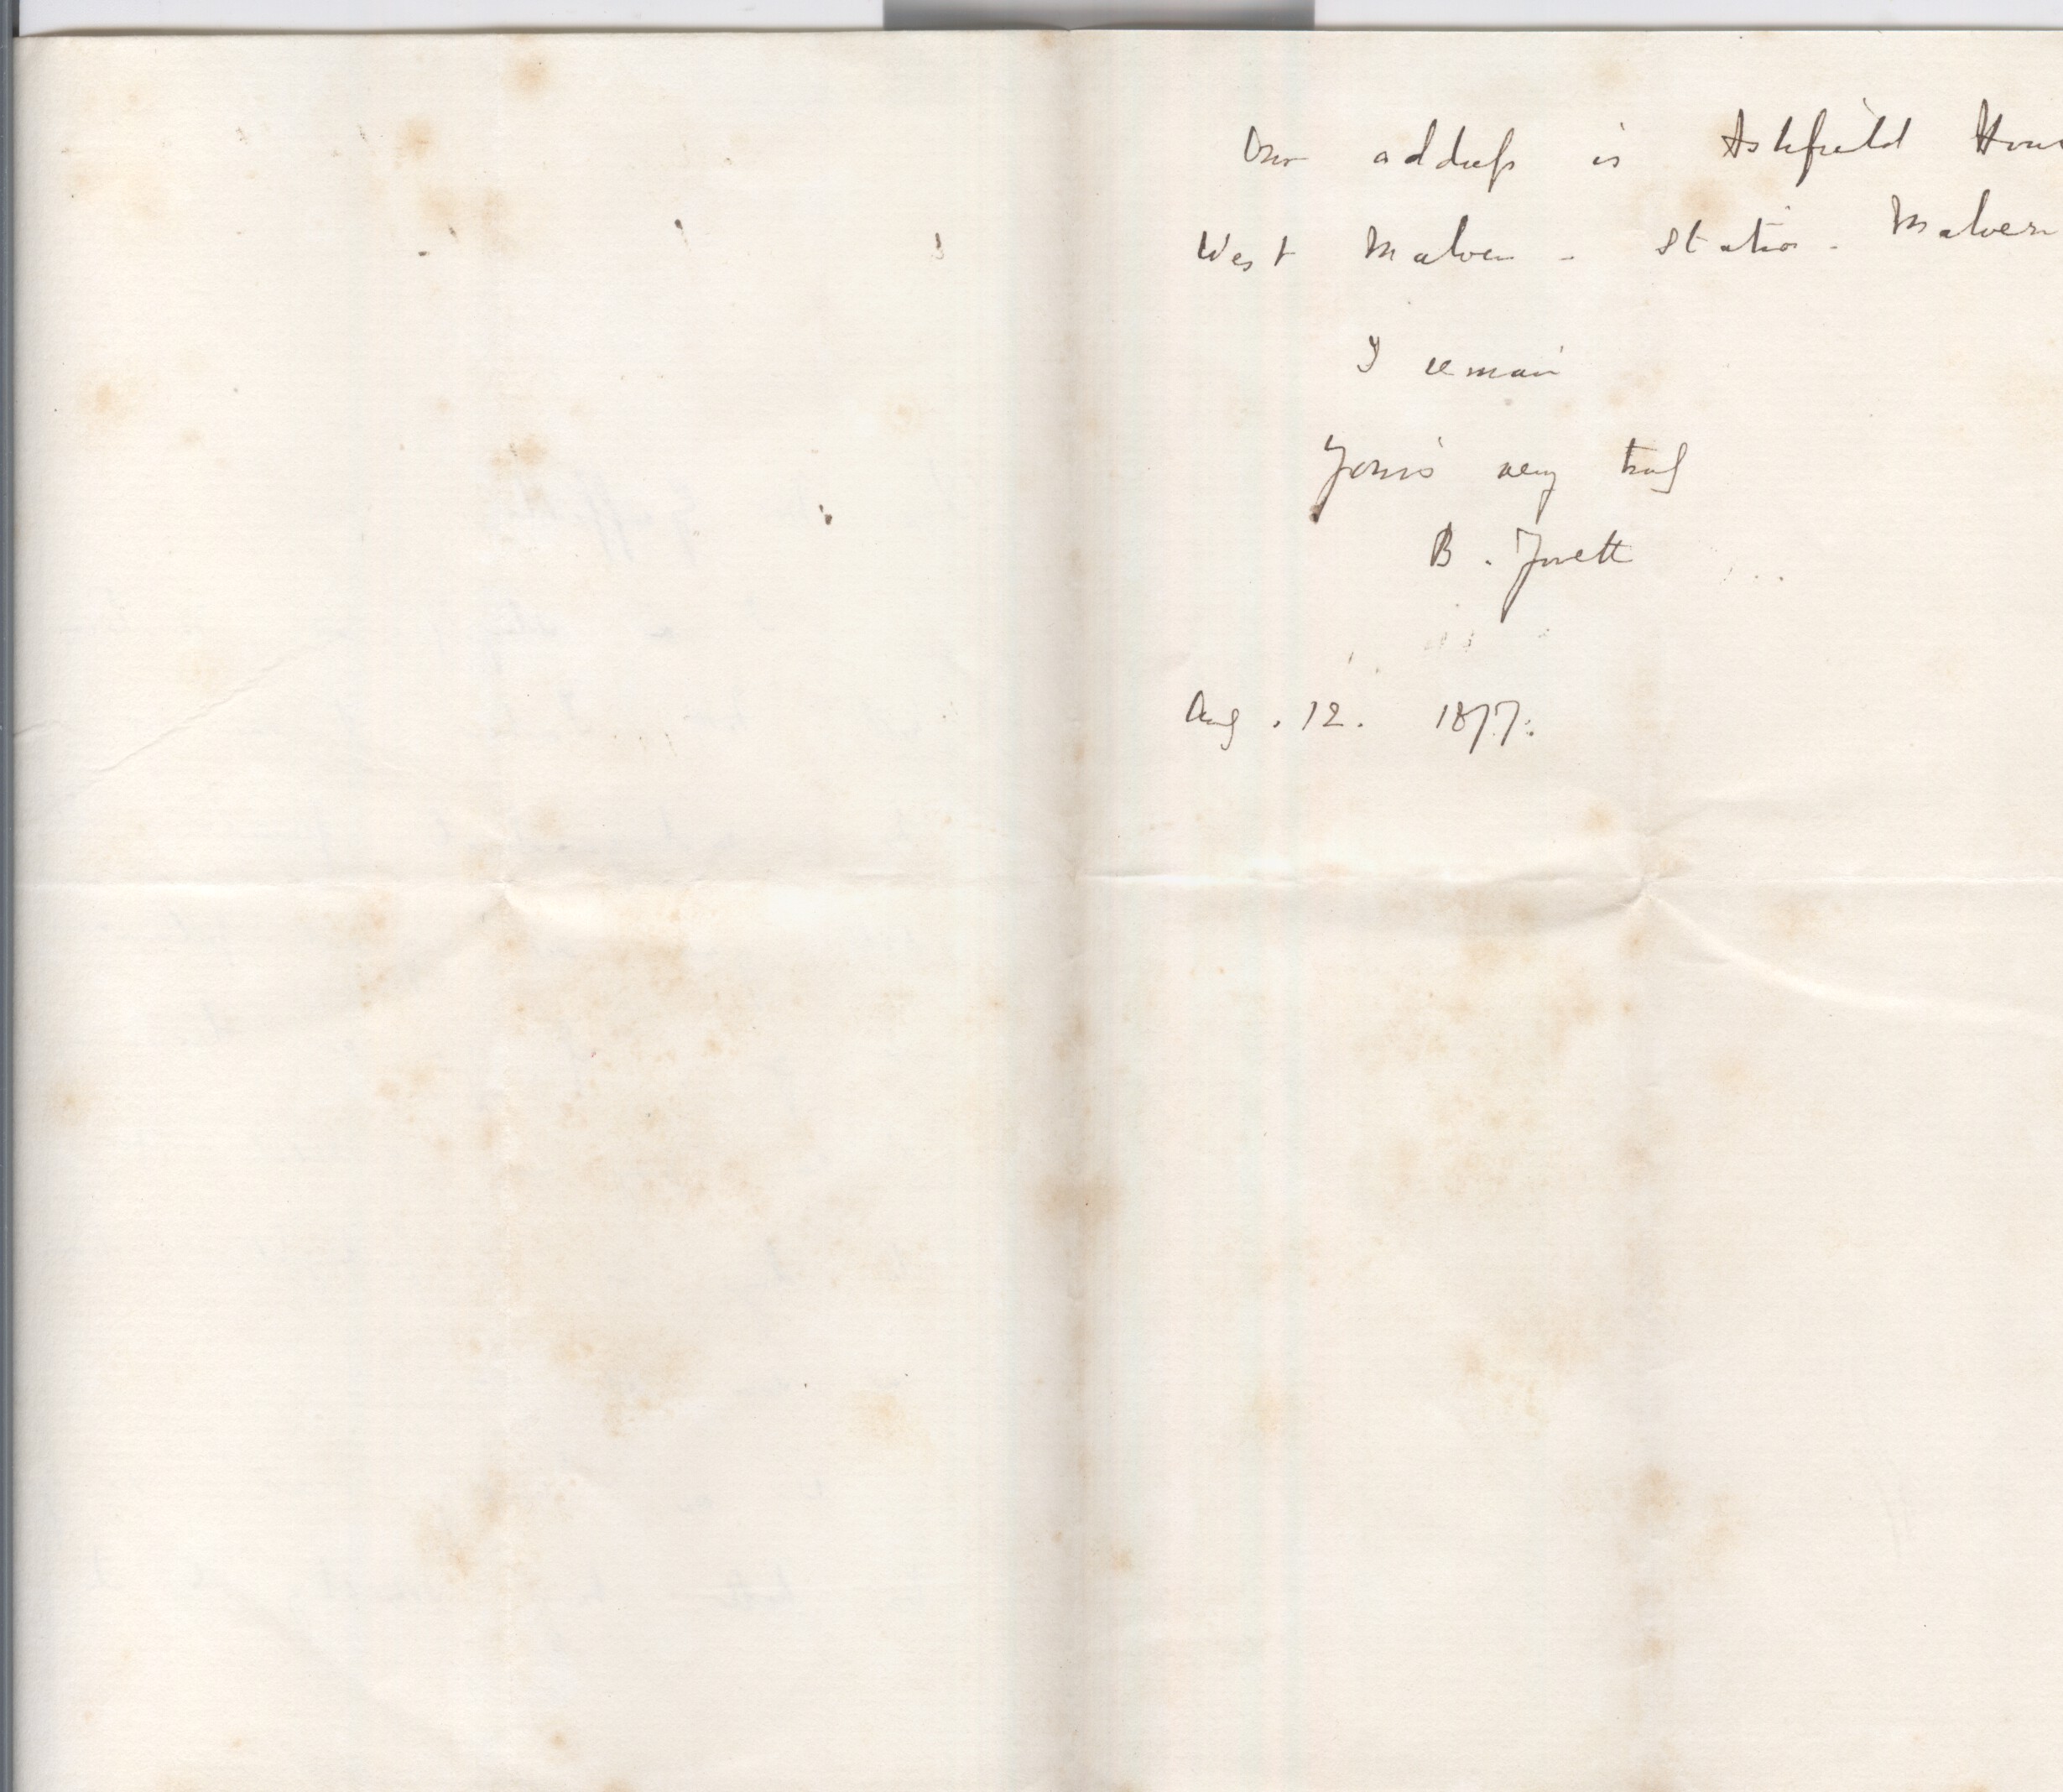 Our address is Ashfield Hous
West Malvern - Station - Malvern
I remain
Yours very truly
B. Jowett
Aug. 12. 1877.